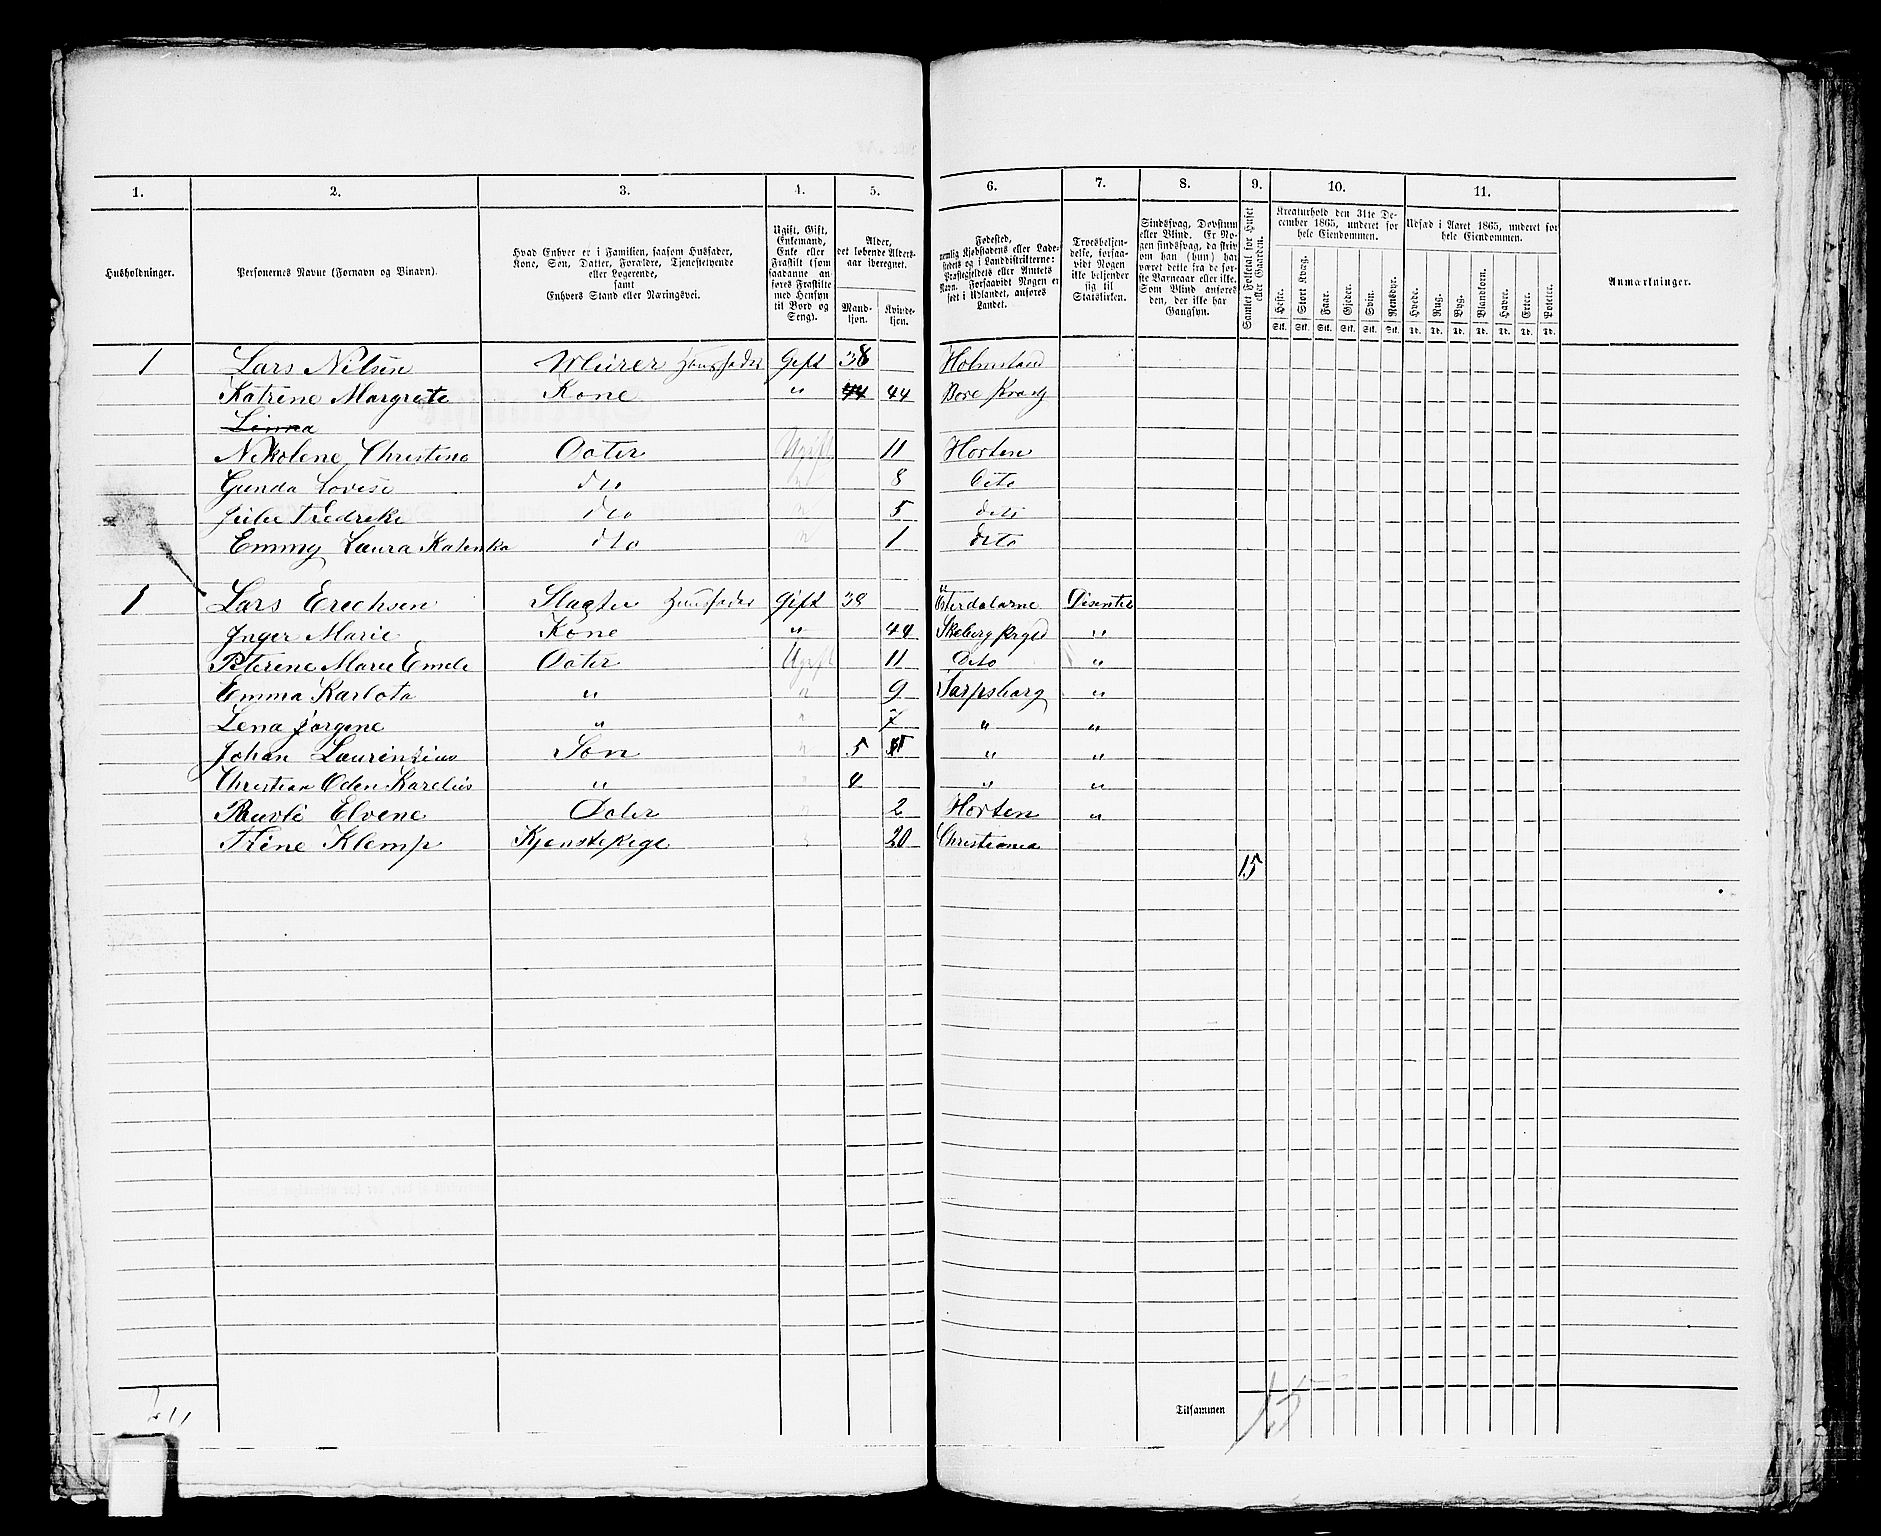 1. 2. 3. 4. 5. 6. 7. 8. 9. 10. 11.
Husholdninger.
Personernes Navne (Fornavn og Binavn).
Hvad Enhver er i Familien, saasom Husfader,
Kone, Søn, Datter, Forældre, Tjenestetyende
eller Logerende,
samt
Enhvers Stand eller Næringsvei.
Ugift, Gift,
Enkemand,
Enke eller
Fraskilt (som
saadanne an-
føres Fraskilte
med Hensyn
til Bord og
Seng).
Alder,
det løbende Alders-
aar iberegnet.
Mand-
kjøn.
Kvinde-
kjøn.
Fødested,
nemlig Kjøbstadens eller Lade-
stedets og i Landdistrikterne:
Præstegjeldets eller Amtets
Navn. Forsaavidt Nogen er
født i Udlandet, anføres
Landet.
Troesbekjen-
delse, forsaa-
vidt Nogen
ikke bekjender
sig til
Statskirken.
Sindssvag, Døvstum
eller Blind. Er No-
gen sindssvag, da skriv
om han (hun) har
været dette fra de før-
ste Barneaar eller ikke.
Som Blind anføres
den, der ikke har
Gangsyn.
Samlet Folketal for Huset
eller Gaarden.
Kreaturhold den 31te De-
cember 1865, underet for
hele Eiendommen.
Heste. Stort Kvæg. Faar. Gjeder. Svin. Rensdyr.
Stk. Stk. Stk. Stk. Stk. Stk.
Udsæd i Aaret 1865, underet for
hele Eiendommen.
Hvede. Rug. Byg. Blandkorn. Havre. Erter. Poteter.
Td. Td. Td. Td. Td. Td. Td.
Anmærkninger.
1 Lars Nilsen Murer Huusfader Gift 38 Holmstad
Katrine Margrete Kone " 44 44
Linna
Nikolene Christina Dater Ugift 11 Horten
Gunda Lovise dto " 8 Dito
Julie Fredreke dto " 5 dito
Emmy Laura Katinka dto " 1 dito
1 Lars Erechsen Slagter Huusfader Gift 39 Østerdalarne Disenter
Inger Marie Kone " 44 Skeberg Prgld "
Peterene Marie Emele Dater Ugift 11 Dito "
Emma Karlota " " 9 Sarpsborg "
Lena Jørgine " " 7 " "
Johan Laurinsius Søn " 5 " "
Christian Oden Karelius " " 4 " "
Elvene Dater " 2 Horten "
Trine Klemp Tjenstepige " 20 Christiania
15
Tilsammen